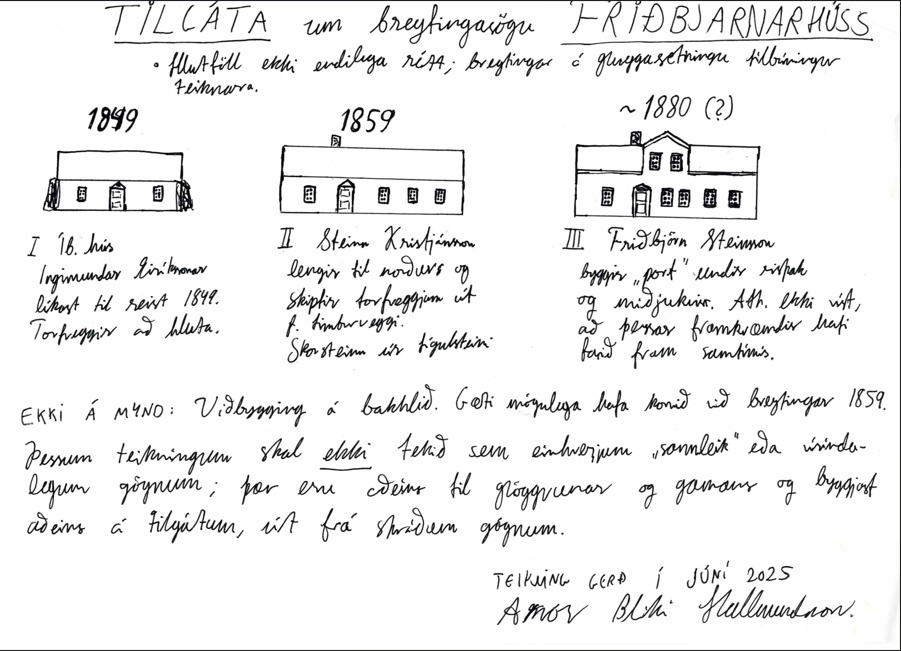 TILGÁTA um breytingasögu FRIÐBJARNARHÚSS
• Hlutföll ekki endilega rétt; breytingar á gluggasetningu tilbúningur
teiknara.
1849
1859
~ 1880 (?)
I Íb. hús
Ingimundar Eiríkssonar
líkast til reist 1849.
Torfveggir að hluta.
II Steinn Kristjánsson
lengir til norðurs og
skiptir torfveggjum út
f. timburveggi.
Skorsteinn úr tigulsteini
III Friðbjörn Steinsson
byggir „port" undir rispak
og miðjukvist. Ath. ekki víst,
að þessar framkvæmdir hafi
farið fram samtímis.
EKKI Á MYND: Viðbygging á bakhlið. Gæti mögulega hafa komið við breytingar 1859.
Þessum teikningum skal ekki tekið sem einhverjum „sannleik" eða vísinda-
legum gögnum; þær eru aðeins til glöggvunar og gamans og byggjast
aðeins á tilgátum, út frá skráðum gögnum.
TEIKNING GERÐ Í JÚNÍ 2025
Arnor Bliki Hallmundsson.